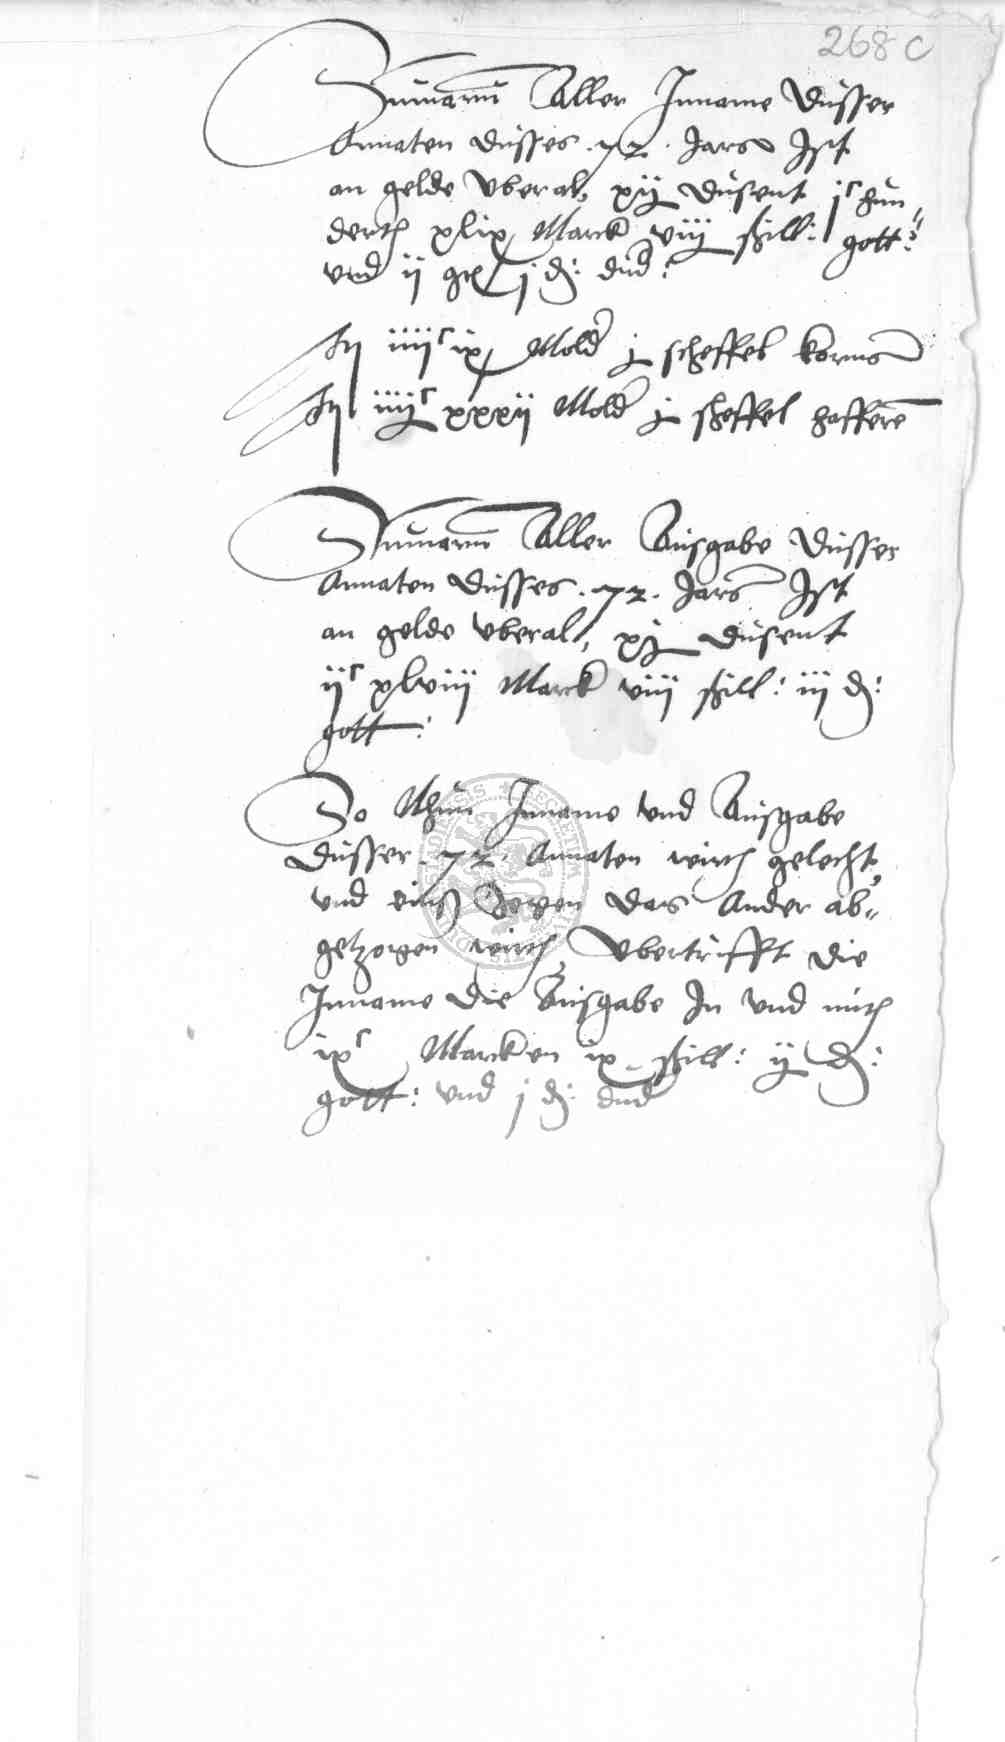 268 c
Summarum Aller Inname dusser
Annaten dusses .72. Jars Ist
an gelde vberal, xij dusent jc hun„
derth xlix Marck viij ßill: gott:
vnd ij gr j d: dud:
In iiijc ix Mold j scheffel korns
In iiijc xxxij Mold j scheffel haffern
Summarum Aller Ausgabe dusser
Annaten dusses .72. Jars Ist
an gelde vberal, xj dusent
ijc xlviij Marck viij ßill: iij d:
gott:
So Nhun Inname vnd Ausgabe
dusser .72. Annaten wirth gelecht,
vnd eins Jegen das Ander ab„
getzogen wirth, Vbertrifft die
Inname die Ausgabe In vnd mith
ixc Marcken ix ßill: ij d:
gott: vnd j d: dud